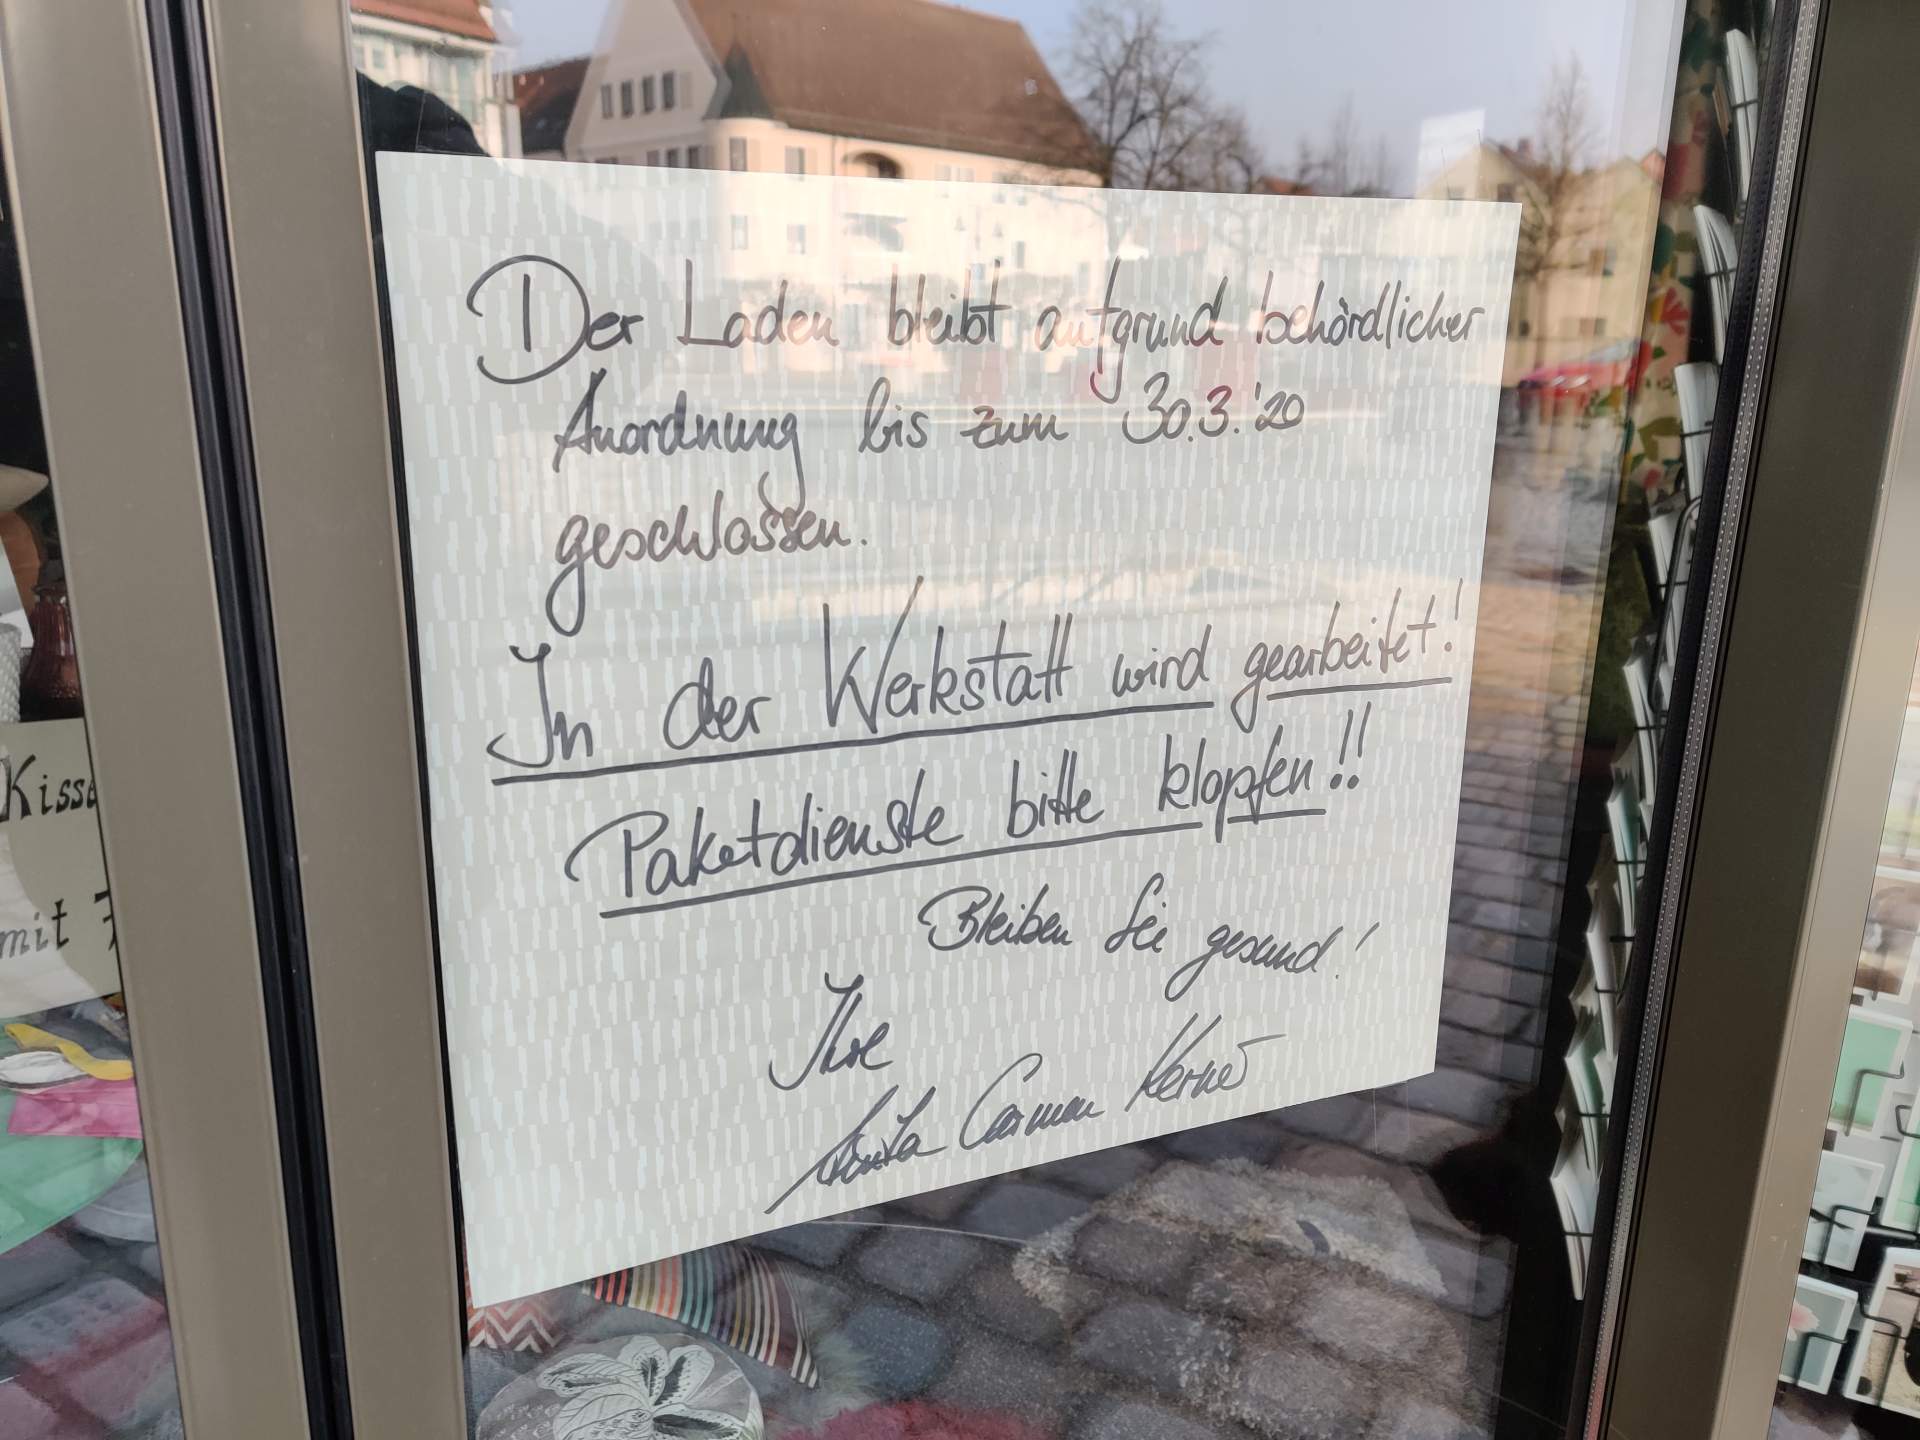 Der Laden bleibt aufgrund behördlicher
Anordnung bis zum 30.3.'20
geschlossen.
In der Werkstatt wird gearbeitet!
Paketdienste bitte klopfen!!
Bleiben Sie gesund!
Ihre
Anita Carmen
Kisse
mit